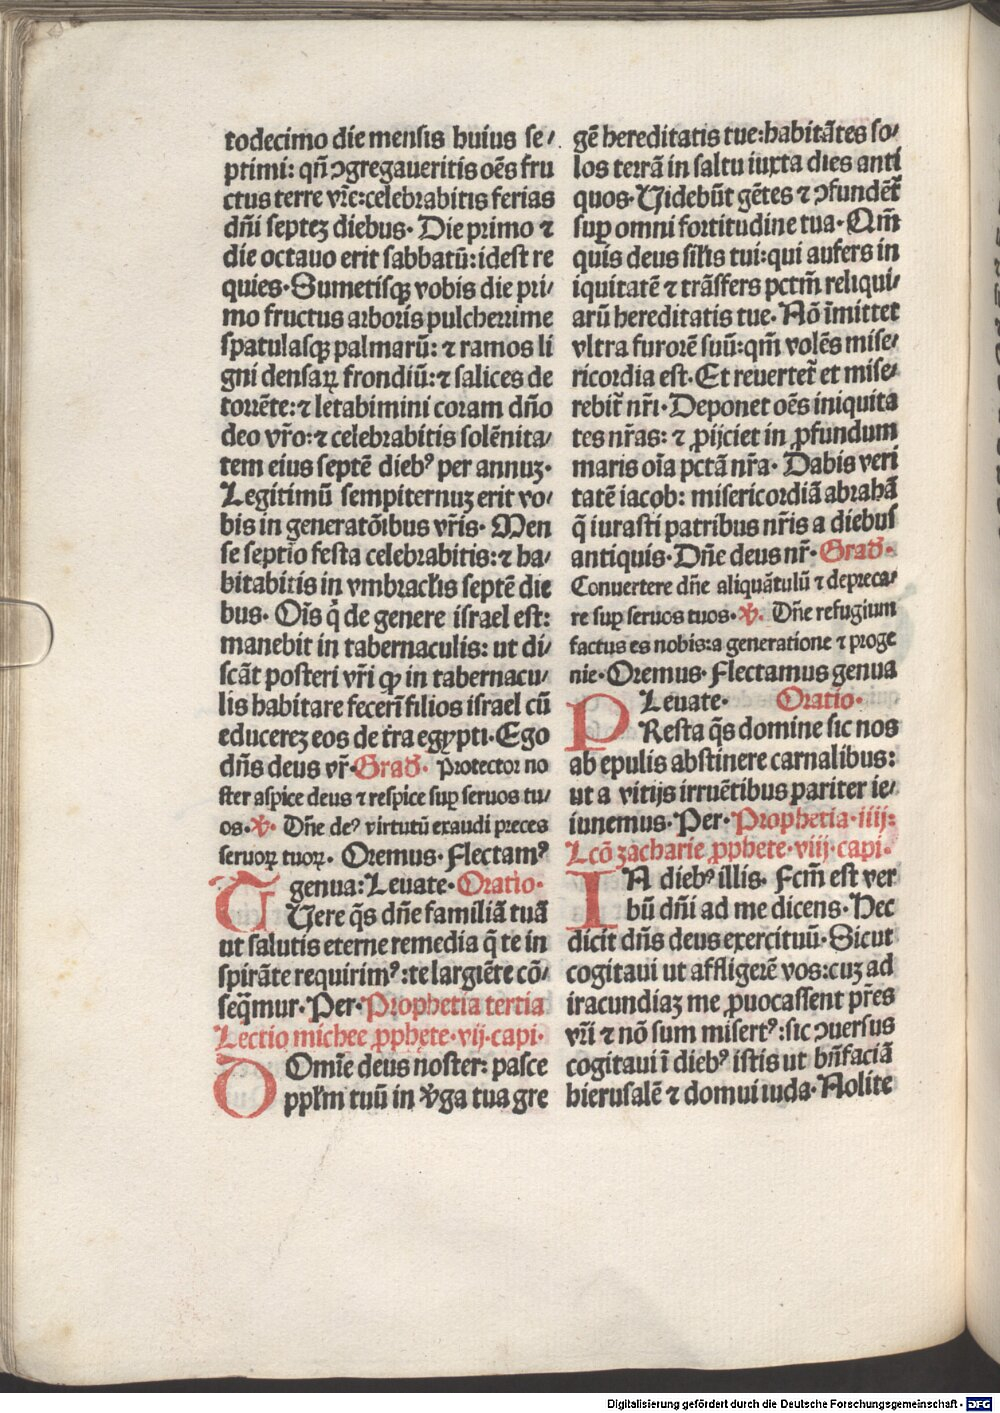 todecimo die mensis huius se/
ptimi: qñ ↄgregaueritis oēs fru
ctus terre vr̄e: celebrabitis ferias
dñi septeꝫ diebus. Die primo ⁊
die octauo erit sabbatū: idest re
quies. Sumetisqꝫ vobis die pri/
mo fructus arboris pulcherrime
spatulasqꝫ palmarū: ⁊ ramos li
gni densaꝝ frondiū: ⁊ salices de
torrēte: ⁊ letabimini coram dño
deo vr̄o: ⁊ celebrabitis solēnita/
tem eius septē diebꝰ per annuꝫ.
Legitimū sempiternuꝫ erit vo/
bis in generatōibus vr̄is. Men
se septīo festa celebrabitis: ⁊ ha/
bitabitis in vmbracl̄is septē die
bus. Oīs q̇ de genere israel est:
manebit in tabernaculis: ut di/
scāt posteri vr̄i ꝙ in tabernacu/
lis habitare fecerī filios israel cū
educereꝫ eos de t̄ra egypti. Ego
dñs deus vr̄. Grad̄. Protector no
ster aspice deus ⁊ respice suꝑ seruos tu/
os. ℣. Dñe deꝰ virtutū exaudi preces
seruoꝝ tuoꝝ. Oremus. Flectamꝰ
genua: Leuate. Oratio.
TUere q̄s dñe familiā tuā
ut salutis eterne remedia q̄ te in
spirāte requirimꝰ: te largiēte cō/
seq̄mur. Per. Prophetia tertia
Lectio michee ꝓphete. vij. capi.
DOmīe deus noster: pasce
ppl̄m tuū in v̓ga tua gre
gē hereditatis tue: habitātes so/
los terrā in saltu iuxta dies anti
quos. Videbūt gētes ⁊ ↄfundēt̄
suꝑ omni fortitudine tua. Qm̄
quis deus sil̄is tui: qui aufers in
iquitatē ⁊ trāsfers pctm̄ reliqui/
arū hereditatis tue. Nō īmittet
vltra furorē suū: qm̄ volēs mise/
ricordia est. Et reuertet̄ et mise/
rebit̄ nr̄i. Deponet oēs iniquita
tes nr̄as: ⁊ ꝓijciet in ꝓfundum
maris oīa pctā nr̄a. Dabis veri
tatē iacob: misericordiā abrahā
q̄ iurasti patribus nr̄is a diebus
antiquis. Dñe deus nr̄. Grad̄.
Conuertere dñe aliquātulū ⁊ depreca/
re suꝑ seruos tuos. ℣. Dñe refugium
factus es nobis: a generatione ⁊ proge
nie. Oremus. Flectamus genua
Leuate. Oratio.
PResta q̄s domine sic nos
ab epulis abstinere carnalibus:
ut a vitijs irruētibus pariter ie/
iunemus. Per. Prophetia. iiij:
Lcō zacharie ꝓphete. viij. capi.
IN diebꝰ illis. Fcm̄ est ver
bū dñi ad me dicens. Hec
dicit dñs deus exercituū. Sicut
cogitaui ut affligerē vos: cuꝫ ad
iracundiaꝫ me ꝓuocassent pr̄es
vr̄i ⁊ nō sum misertꝰ: sic ↄuersus
cogitaui ī diebꝰ istis ut bn̄faciā
hierusalē ⁊ domui iuda. Nolite
Digitalisierung gefördert durch die Deutsche Forschungsgemeinschaft - DFG